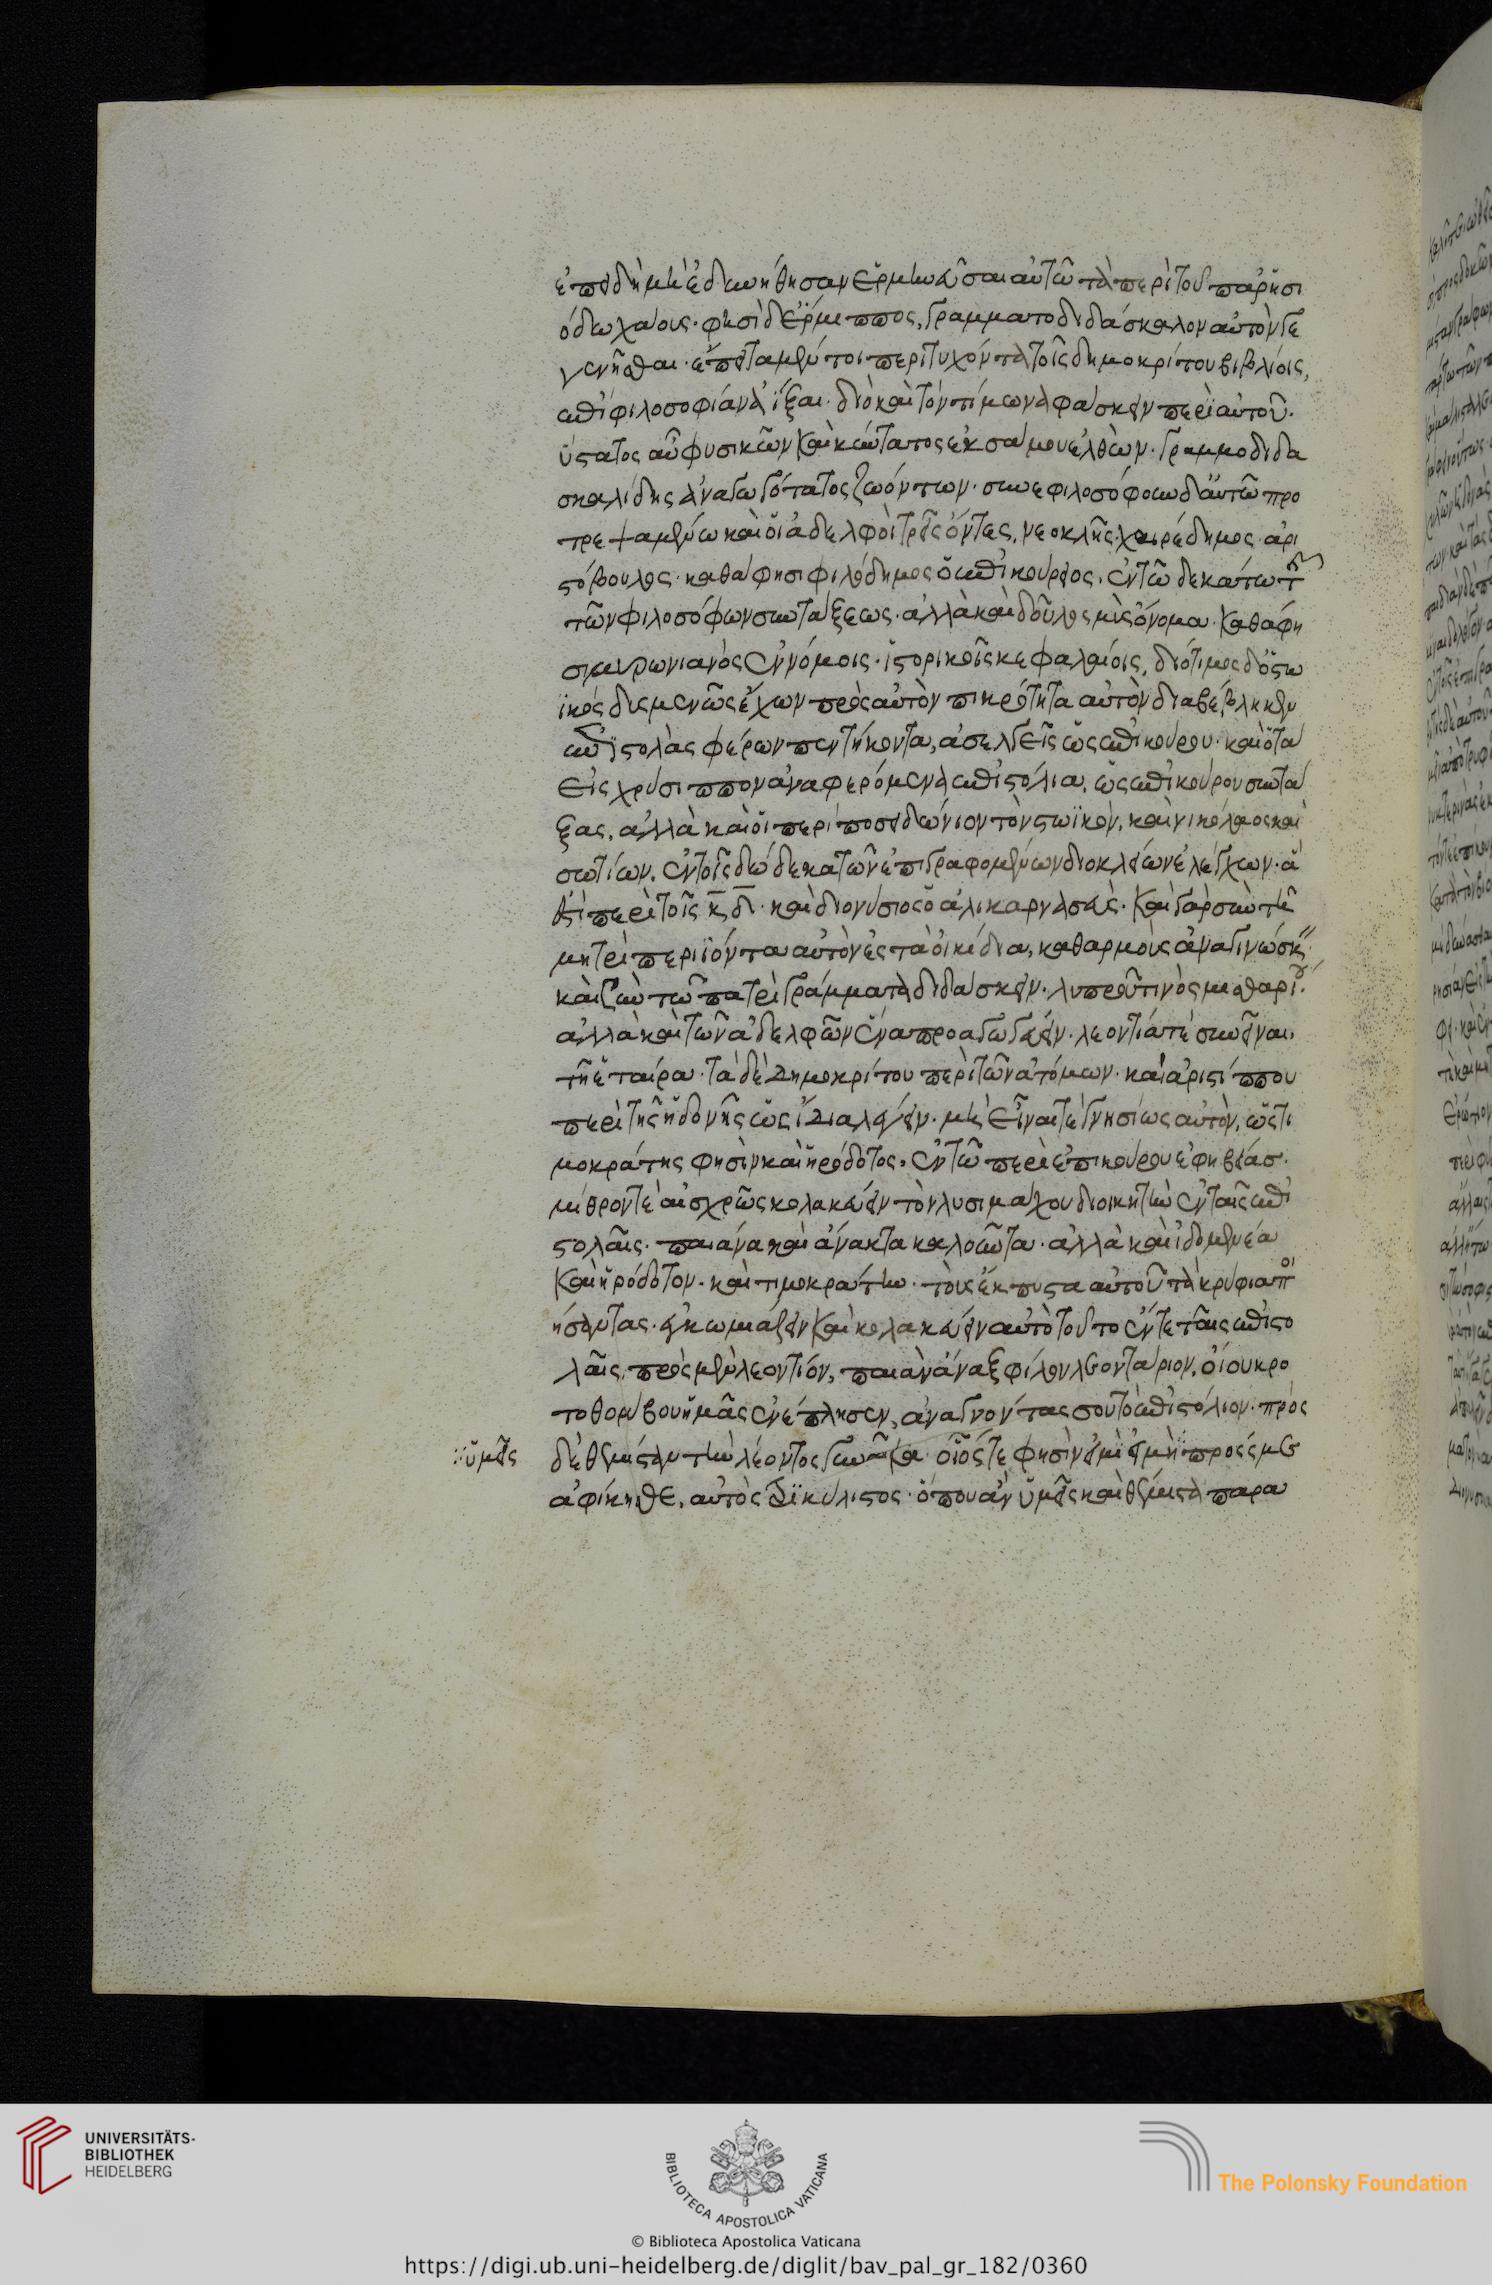 ἐπειδὴ μὴ ἐδυνήθησαν ἑρμηνεῦσαι αὐτῶ τὰ περὶ τοῦ παρ ἡσι
όδω χάους· φησὶ δ ἕρμιππος, γραμματοδιδάσκαλον αὐτὸν γε
γενῆσθαι· ἔπειτα μέν τοι περιτυχόντα τοῖς δημοκρίτου βιβλίοις,
ἐπὶ φιλοσοφίαν ἀΐξαι· διὸ καὶ τὸν τίμωνα φάσκειν περὶ αὐτοῦ·
ὕστατος αὖ φυσικῶν καὶ κύντατος ἐκ σάμου ἐλθὼν· γραμμοδιδα
σκαλίδης ἀναγωγότατος ζωόντων· συνεφιλοσόφουν δ αὐτῶ προ
τρεψαμένω καὶ οἱ ἀδελφοὶ τρεῖς ὄντες, νεοκλῆς· χαιρέδημος· ἀρι
στόβουλος· καθά φησι φιλόδημος ὁ ἐπικούρειος, ἐν τῶ δεκάτω τῆς
τῶν φιλοσόφων συντάξεως· ἀλλὰ καὶ δοῦλος μῦς ὄνομα· καθά φη
σι μυρωνιανὸς ἐν νόμοις· ἱστορικοῖς κεφαλαίοις, διότιμος δ ὁ στω
ϊκὸς δυσμενῶς ἔχων πρὸς αὐτὸν πικρότητα αὐτὸν διαβέβληκεν
ἐπιστολὰς φέρων πεντήκοντα, ἀσελγεῖς ὡς ἐπικούρου· καὶ ὁ τὰ
εἰς χρύσιππον ἀναφερόμενα ἐπιστόλια, ὡς ἐπικούρου συντά
ξας, ἀλλὰ καὶ οἱ περὶ ποσειδώνιον τὸν στωϊκὸν, καὶ νικόλαος καὶ
σωτίων, ἐν τοῖς δώδεκα τῶν ἐπιγραφομένων διοκλείων ἐλέγχων· ἅ
ἐστι περὶ τοῖς κ̅ δ̅· καὶ διονύσιος ὁ ἁλικαρνασεύς· καὶ γὰρ σὺν τῆ
μητρὶ περιϊόντα αὐτὸν ἐς τὰ οἰκίδια, καθαρμοὺς ἀναγινώσκειν·
καὶ σὺν τῶ πατρὶ γράμματα διδάσκειν· λυπροῦ τινὸς μισθαρίου·
ἀλλὰ καὶ τῶν ἀδελφῶν ἕνα προαγωγεύειν· λεοντία τὲ συνεῖναι,
τῆ ἑταίρα· τὰ δὲ δημοκρίτου περὶ τῶν ἀτόμων· καὶ ἀριστίππου
περὶ τῆς ἡδονῆς ὡς ἴδια λέγειν· μὴ εἶναι τὲ γνησίως αὐτὸν, ὥς τι
μοκράτης φησὶν καὶ ἡρόδοτος· ἐν τῶ περὶ ἐπικούρου ἐφηβείας·
μίθρον τὲ αἰσχρῶς κολακεύειν τὸν λυσιμάχου διοικητὴν ἐν ταῖς ἐπι
στολαῖς· παιάνα καὶ ἄνακτα καλοῦντα· ἀλλὰ καὶ ἰδομενέα
καὶ ἡρόδοτον· καὶ τιμοκράτην· τοὺς ἔκπυστα αὐτοῦ τὰ κρύφια ποι
ήσαντας· ἐγκωμιάζειν καὶ κολακεύειν αὐτὸ τοῦτο ἔν τε ταῖς ἐπιστο
λαῖς, πρὸς μὲν λεοντιόν, παιὰν ἄναξ φίλον λεοντάριον, οἵου κρο
τοθορύβου ἡμᾶς ἐνέπλησεν, ἀναγνόντας σου τὸ ἐπιστόλιον· πρὸς
ὑμεῖς δὲ θεμίσταν τὴν λέοντος γυναῖκα· οἷός τε φησὶν εἰμὶ ἐμὴ πρὸς με
ἀφίκησθε, αὐτὸς τρικύλιστος· ὅπου ἂν ὑμεῖς καὶ θεμίστα παρα
UNIVERSITÄTS-
BIBLIOTHEK
HEIDELBERG
BIBLIOTECA APOSTOLICA VATICANA
The Polonsky Foundation
© Biblioteca Apostolica Vaticana
https://digi.ub.uni-heidelberg.de/diglit/bav_pal_gr_182/0360